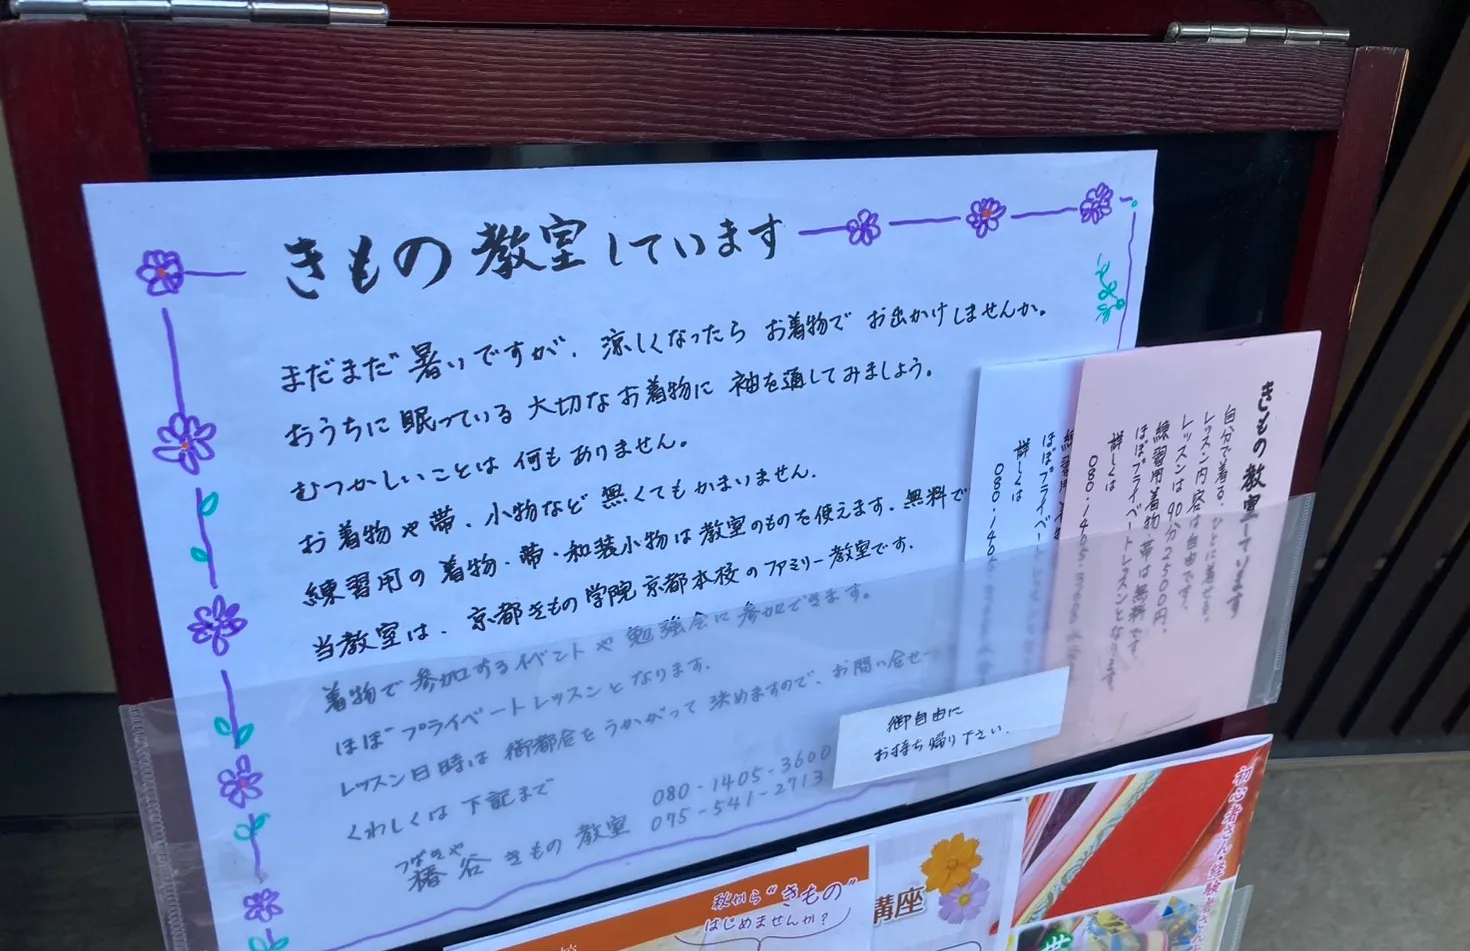 きもの教室しています
まだまだ暑いですが、涼しくなったら お着物で お出かけしませんか。
おうちに眠っている 大切なお着物に 袖を通してみましょう。
むつかしいことは 何もありません。
お着物や帯、小物など 無くてもかまいません。
練習用の着物・帯・和装小物は教室のものを使えます。無料で
当教室は、京都きもの学院京都本校のファミリー教室です。
着物で参加するイベントや勉強会に参加できます。
ほぼプライベートレッスンとなります。
レッスン日時は御都合をうかがって決めますので、お問い合せ
くわしくは下記まで
つばきや
椿谷きもの教室
080-1405-3600
075-541-2713
御自由に
お持ち帰り下さい。
きもの教室
自分で着る、ひとに着せる。
レッスン内容は自由です。
レッスンは90分2500円。
練習用着物、帯は無料です。
ほぼプライベートレッスンとなります。
詳しくは
080-1405-3600
ほぼプライベート
詳しくは
080-1405
秋から"きもの"
はじめませんか?
講座
初心者さん・経験者さん
帯